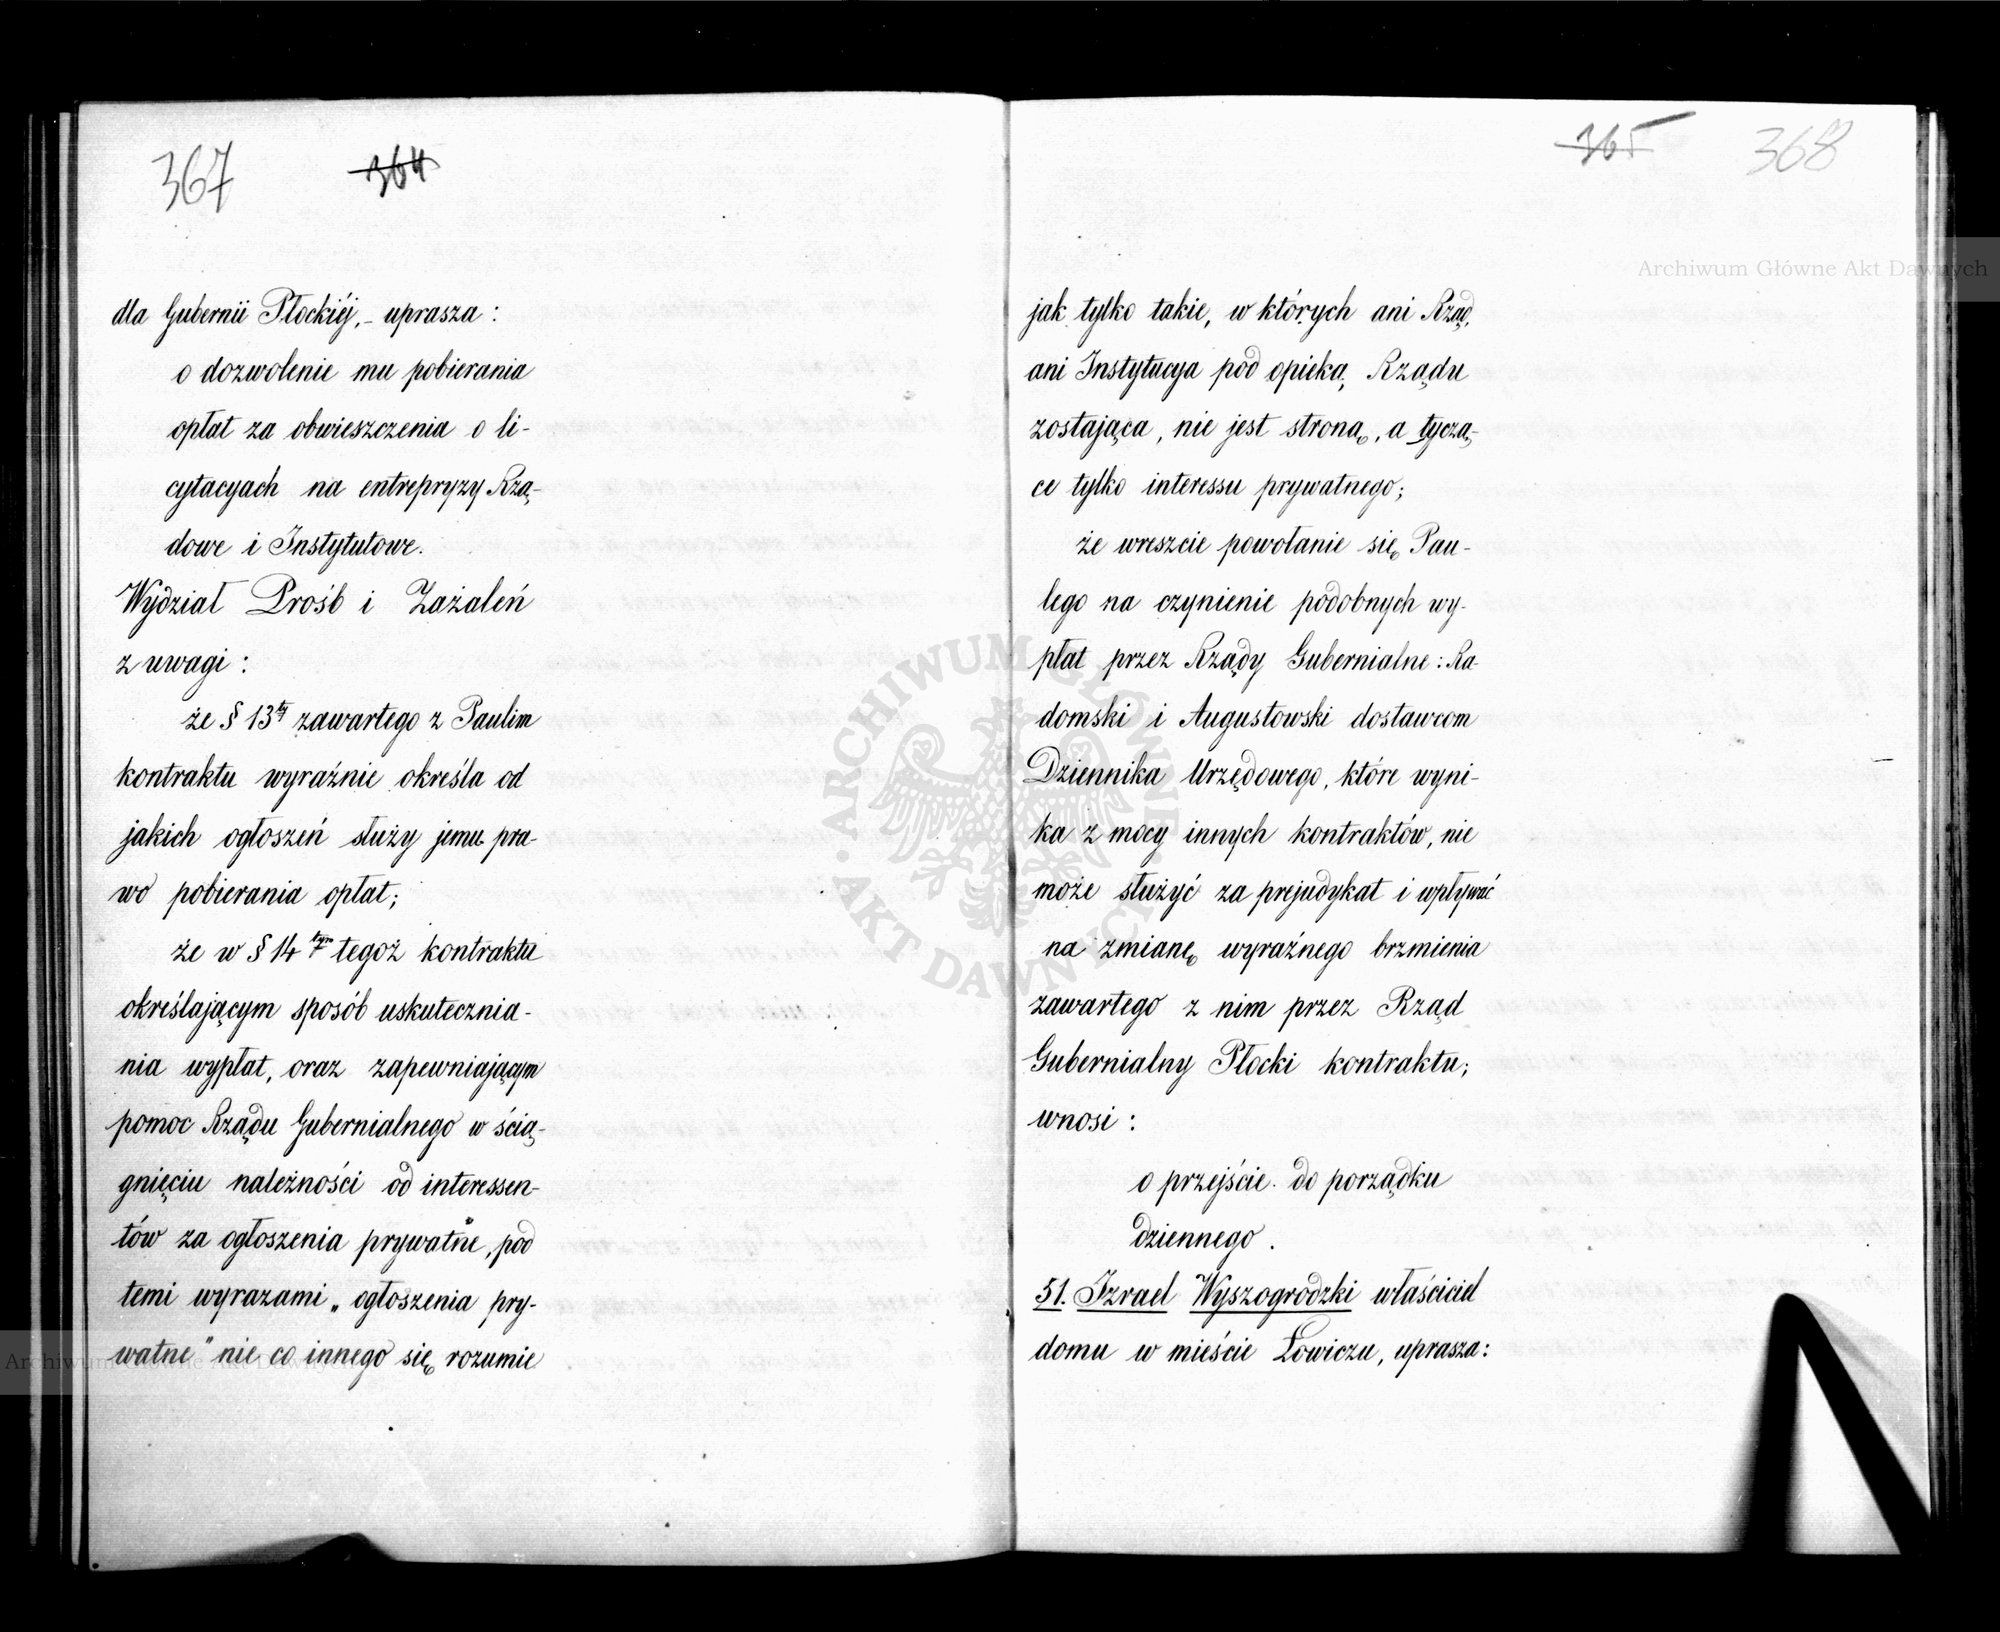 367 364
dla Gubernii Płockiéj,- uprasza:
o dozwolenie mu pobierania
opłat za obwieszczenia o li-
cytacyach na entrepryzy Rzą-
dowe i Instytutowe.
Wydział Prośb i Zażaleń
z uwagi:
że § 13ty zawartego z Paulim
kontraktu wyraźnie określa od
jakich ogłoszeń służy jemu pra-
wo pobierania opłat;
że w § 14tym tegoż kontraktu
określającym sposób uskutecznia-
nia wypłat, oraz zapewniającym
pomoc Rządu Gubernialnego w ścią-
gnięciu należności od interessen-
tów za ogłoszenia prywatne, pod
temi wyrazami „ogłoszenia pry-
watne" nie co innego się rozumie
365 368
Archiwum Główne Akt Dawnych
jak tylko takie, w których ani Rząd,
ani Instytucya pod opieką Rządu
zostająca, nie jest stroną, a tyczą-
ce tylko interessu prywatnego;
że wreszcie powołanie się Pau-
lego na czynienie podobnych wy-
płat przez Rządy Gubernialne: Ra-
domski i Augustowski dostawcom
Dziennika Urzędowego, które wyni-
ka z mocy innych kontraktów, nie
może służyć za prejudykat i wpływać
na zmianę wyraźnego brzmienia
zawartego z nim przez Rząd
Gubernialny Płocki kontraktu;
wnosi:
o przejście do porządku
dziennego.
51. Izrael Wyszogrodzki właściciel
domu w mieście Łowiczu, uprasza:
ARCHIWUM GŁÓWNE AKT DAWNYCH